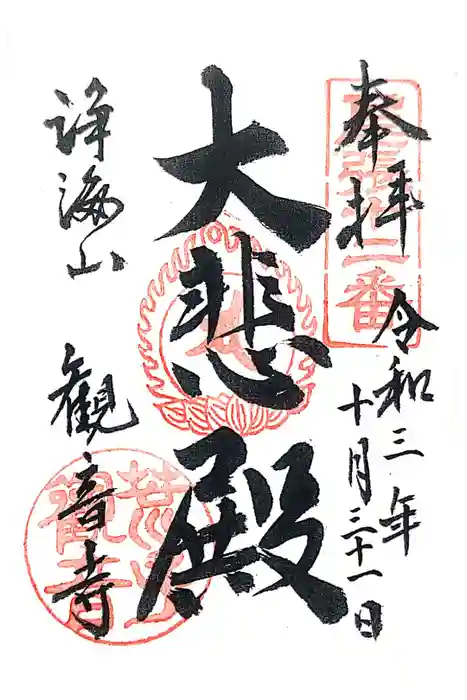 奉拝
令和三年
十月三十一日
大悲殿
浄海山
観音寺
荒子観音